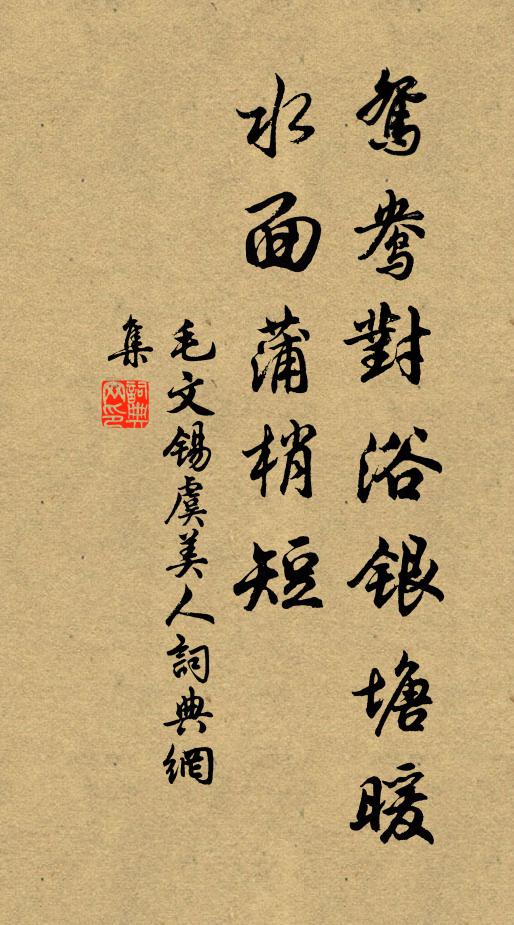 鴛鴦對浴銀塘暖
水面蒲梢短
毛文錫虞美人詞典網
集
詞典網印